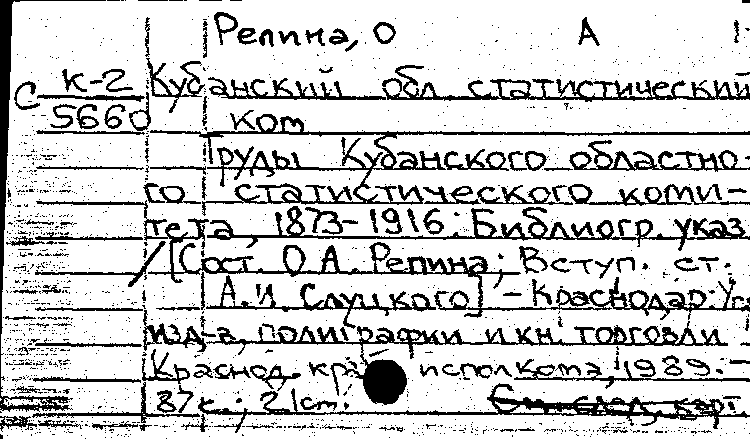 Репина, О А
С К-2 Кубанский обл статистический
5660 ком
Труды Кубанского областно-
го статистического коми-
тета, 1873-1916: Библиогр. указ
/ [Сост. О А. Репина; Вступ. ст.
А.И. Слуцкого] - Краснодар: Уп
изд-в, полиграфии и кн. торговли
Краснод. кра исполкома, 1989. -
87 с.; 21 cm.